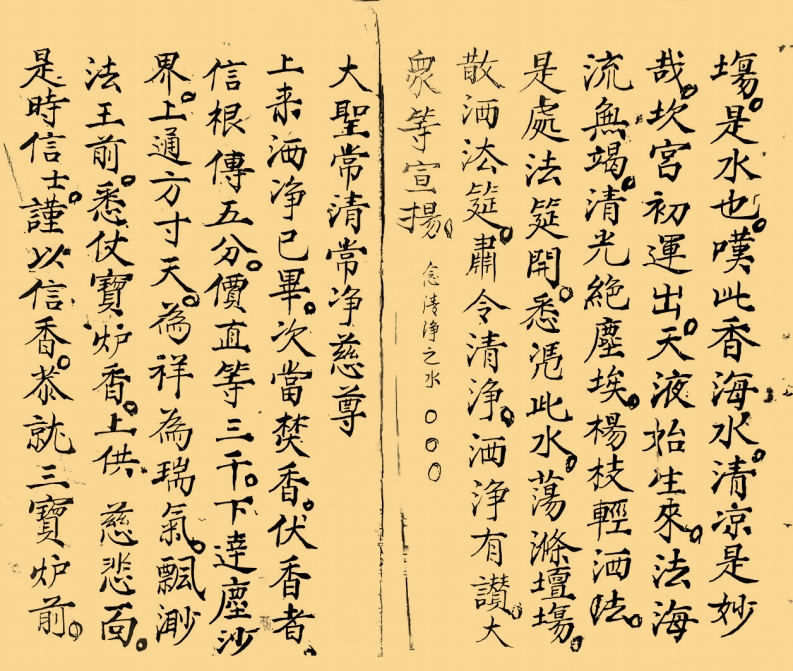 塲。是水也。嘆此香海水。清凉是妙
哉。坎宮初運出。天液始生來。法海
流無竭。清光絶塵埃。楊枝輕洒
是處法筵開。悉凴此水。蕩滌壇塲。
散洒法筵。肅令清净。洒净有讃。大
衆等宣揚。念清净之水○○○
大聖常清常净慈尊
上来洒净已畢。次當焚香。伏香者。
信根傳五分。價直等三千。下達塵沙
界。上通方寸天。為祥為瑞氣。飄渺
法王前。悉仗寶炉香。上供。慈悲面。
是時信士。謹以信香。恭就三寶炉前。